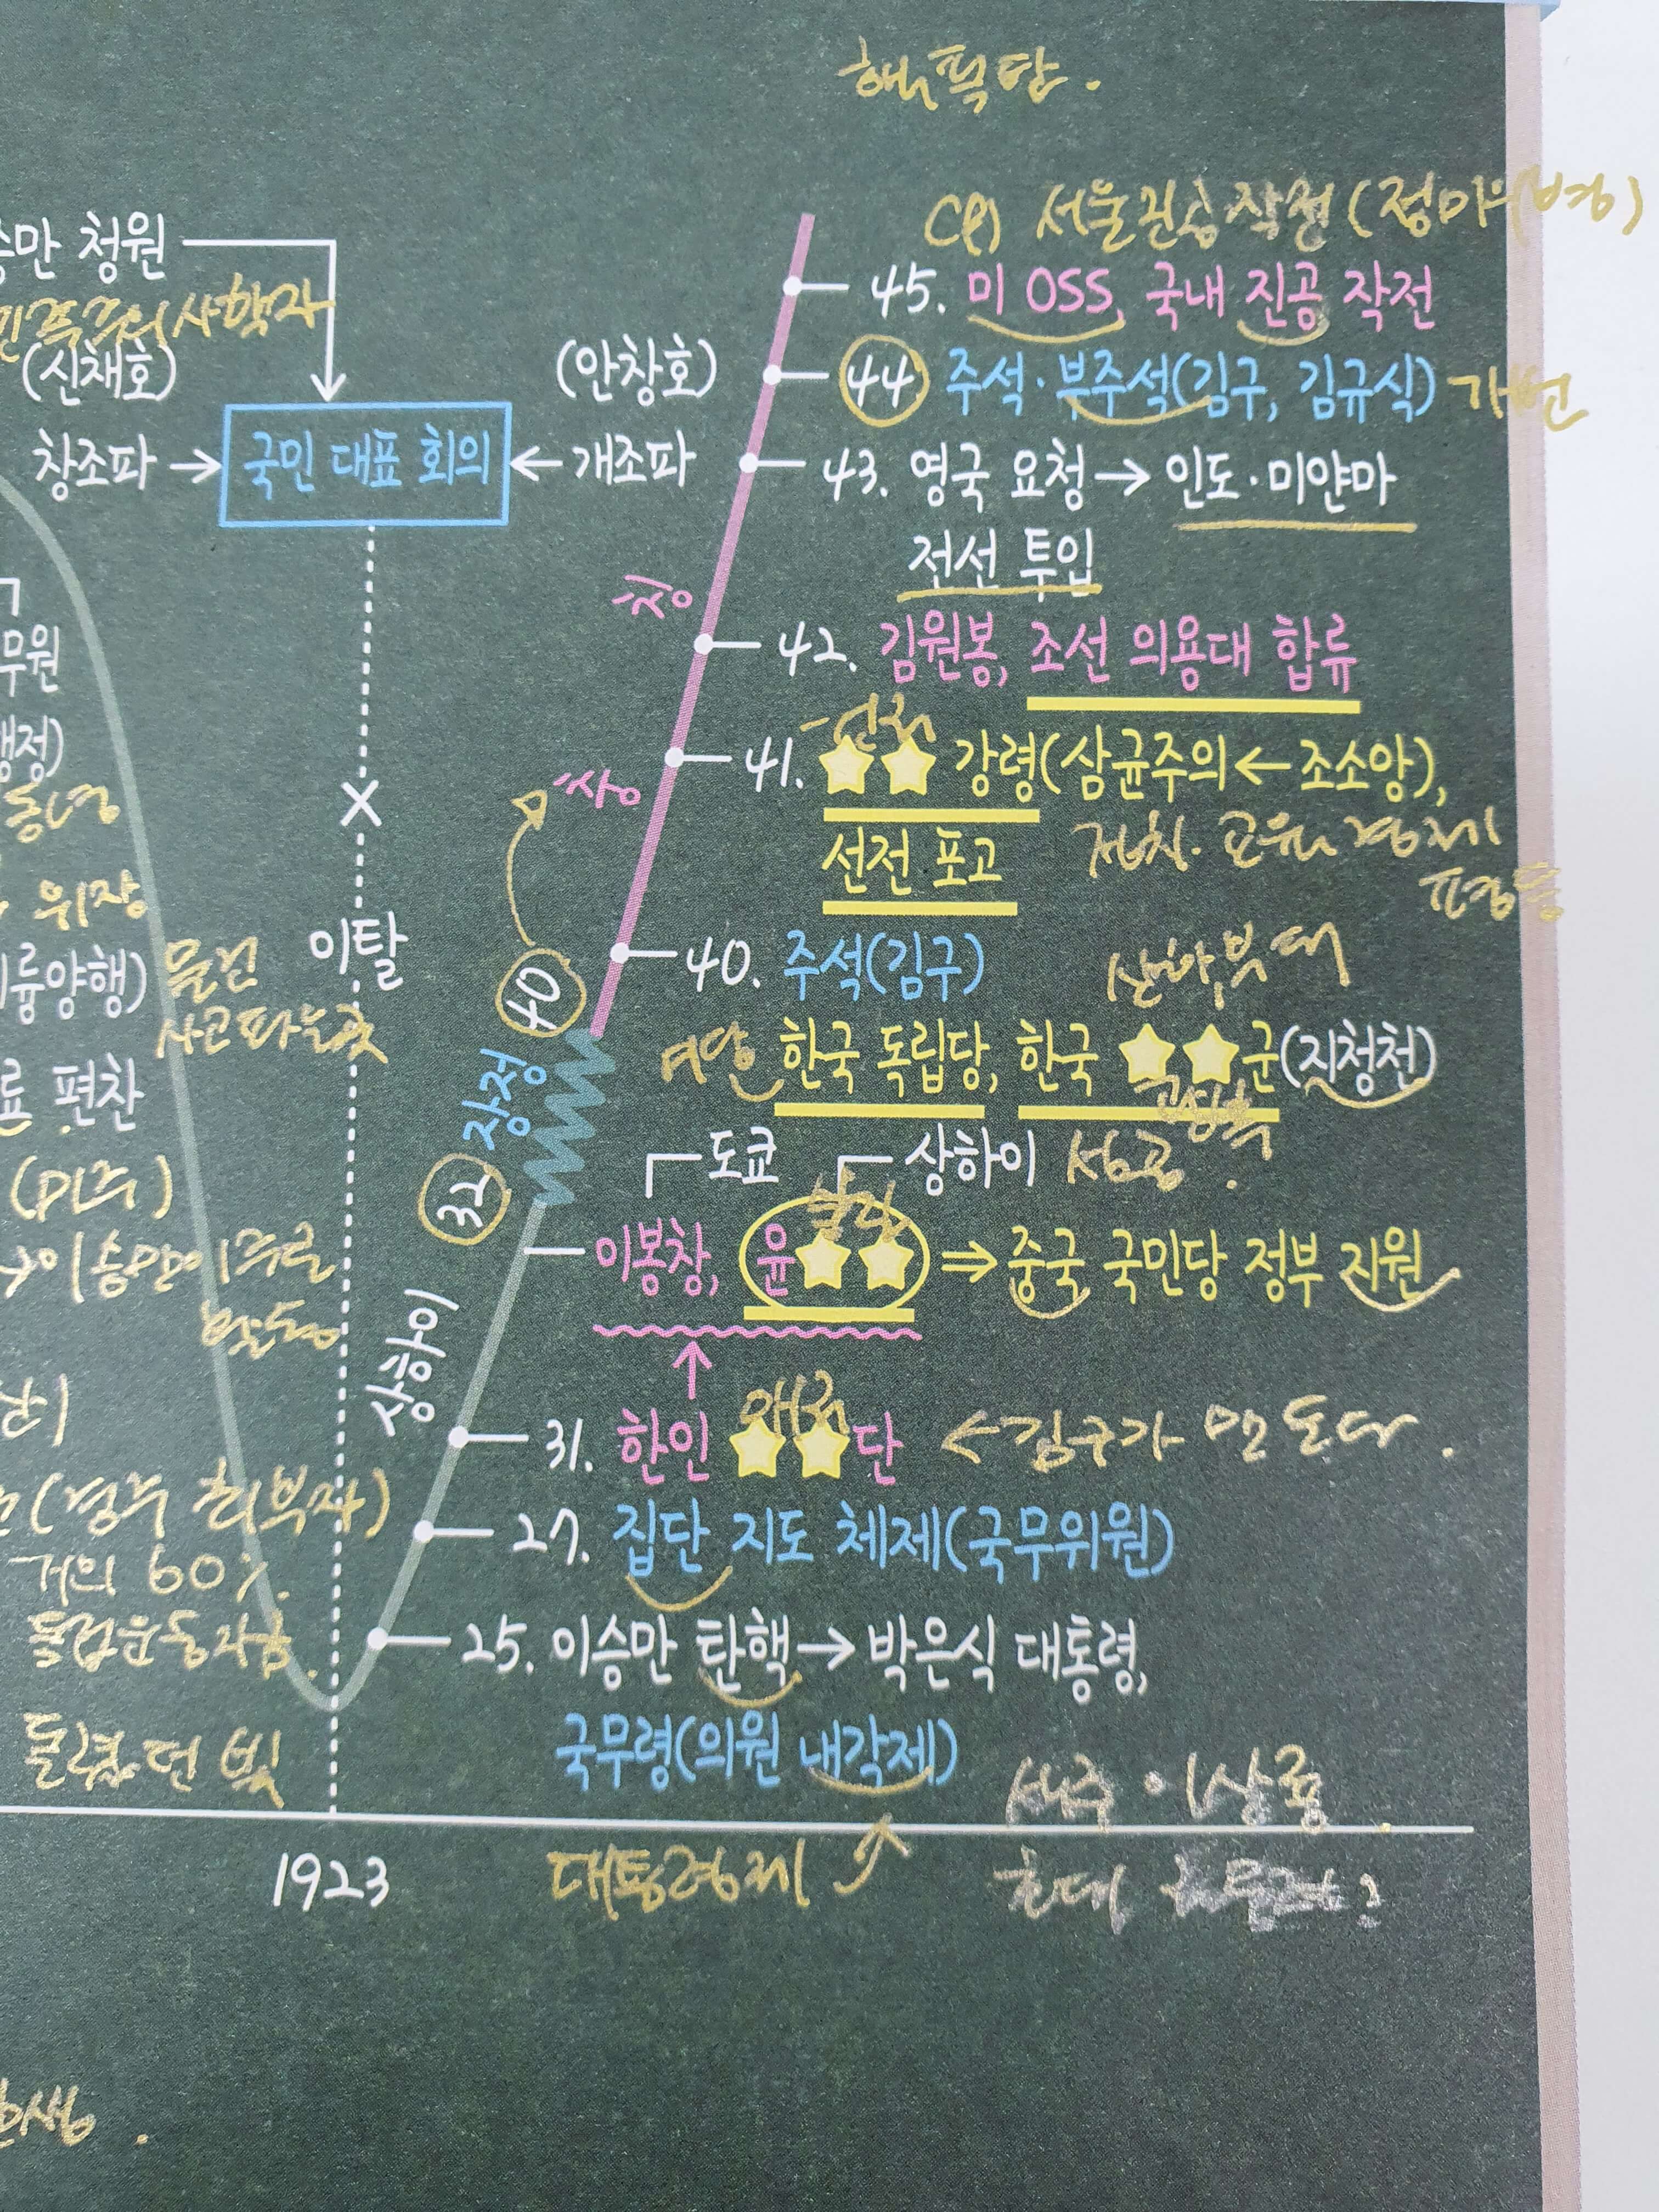 해픽단.
cf) 서울진공작전(정미의병)
승만 청원
45. 미 OSS, 국내 진공 작전
민족주의사학자
(신채호)
(안창호)
44. 주석·부주석(김구, 김규식) 개헌
창조파 → 국민 대표 회의 ← 개조파
43. 영국 요청 → 인도·미얀마
전선 투입
칭
무원
42. 김원봉, 조선 의용대 합류
행정)
건국
41. ☆☆ 강령(삼균주의 ← 조소앙),
충
선전 포고
정치·교육·경제
평등
위장
이탈
40. 주석(김구)
산하부대
이륭양행) 물건
사고파는곳
40
여당 한국 독립당, 한국 ☆☆군(지청천)
광복
료 편찬
장정
도쿄
상하이 성공.
(미주)
32
이봉창, 윤☆☆ ⇒ 중국 국민당 정부 지원
→이승만이주로
활동
상하이
애국
31. 한인 ☆☆단 ← 김구가 만든단.
(경주 최부자)
27. 집단 지도 체제(국무위원)
거의 60%
독립운동자금.
25. 이승만 탄핵 → 박은식 대통령,
국무령(의원 내각제)
석주 이상룡
1923
대통령제
초대 국무령